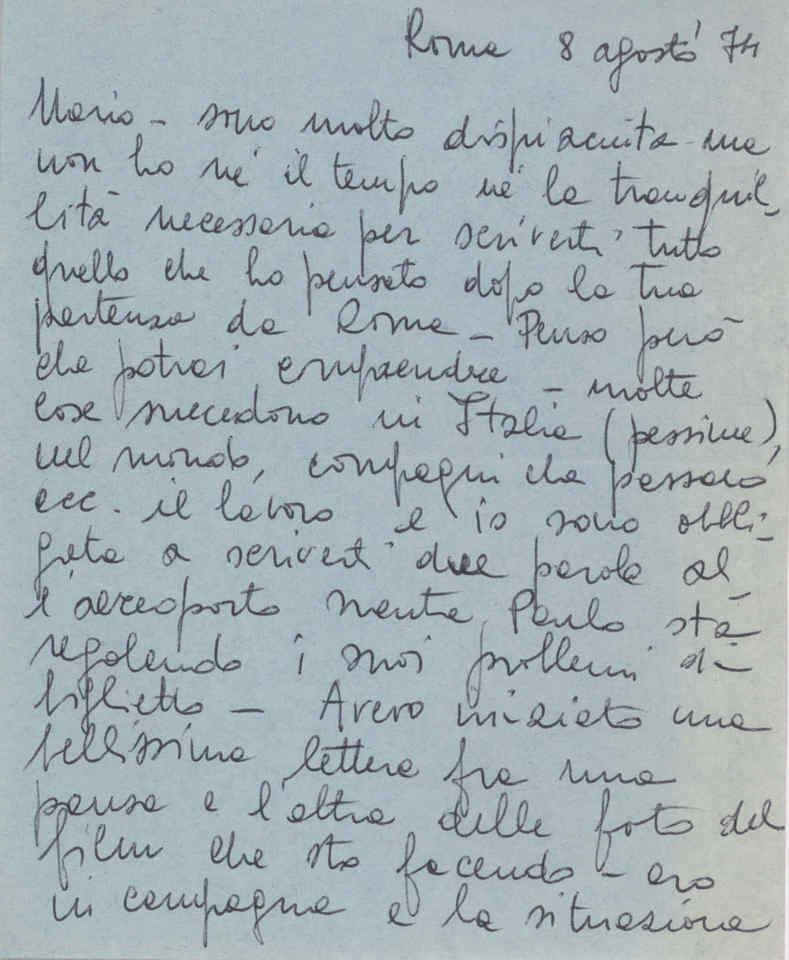 Roma 8 agosto '74
Mario - sono molto dispiaciuta ma
non ho nè il tempo nè la tranquil_
lità necessaria per scriverti tutto
quello che ho pensato dopo la tua
partenza da Roma - Penso però
che potrai comprendre - molte
cose succedono in Italia (pessime),
nel mondo, compagni che passano
ecc. il lavoro e io sono obbli-
gata a scriverti due parole al_
l'aereoporto mentre Paulo stà
regolando i suoi problemi di
biglietto - Avevo iniziato una
bellissima lettera fra una
pausa e l'altra delle foto del
film che sto facendo - ero
in campagna e la situazione